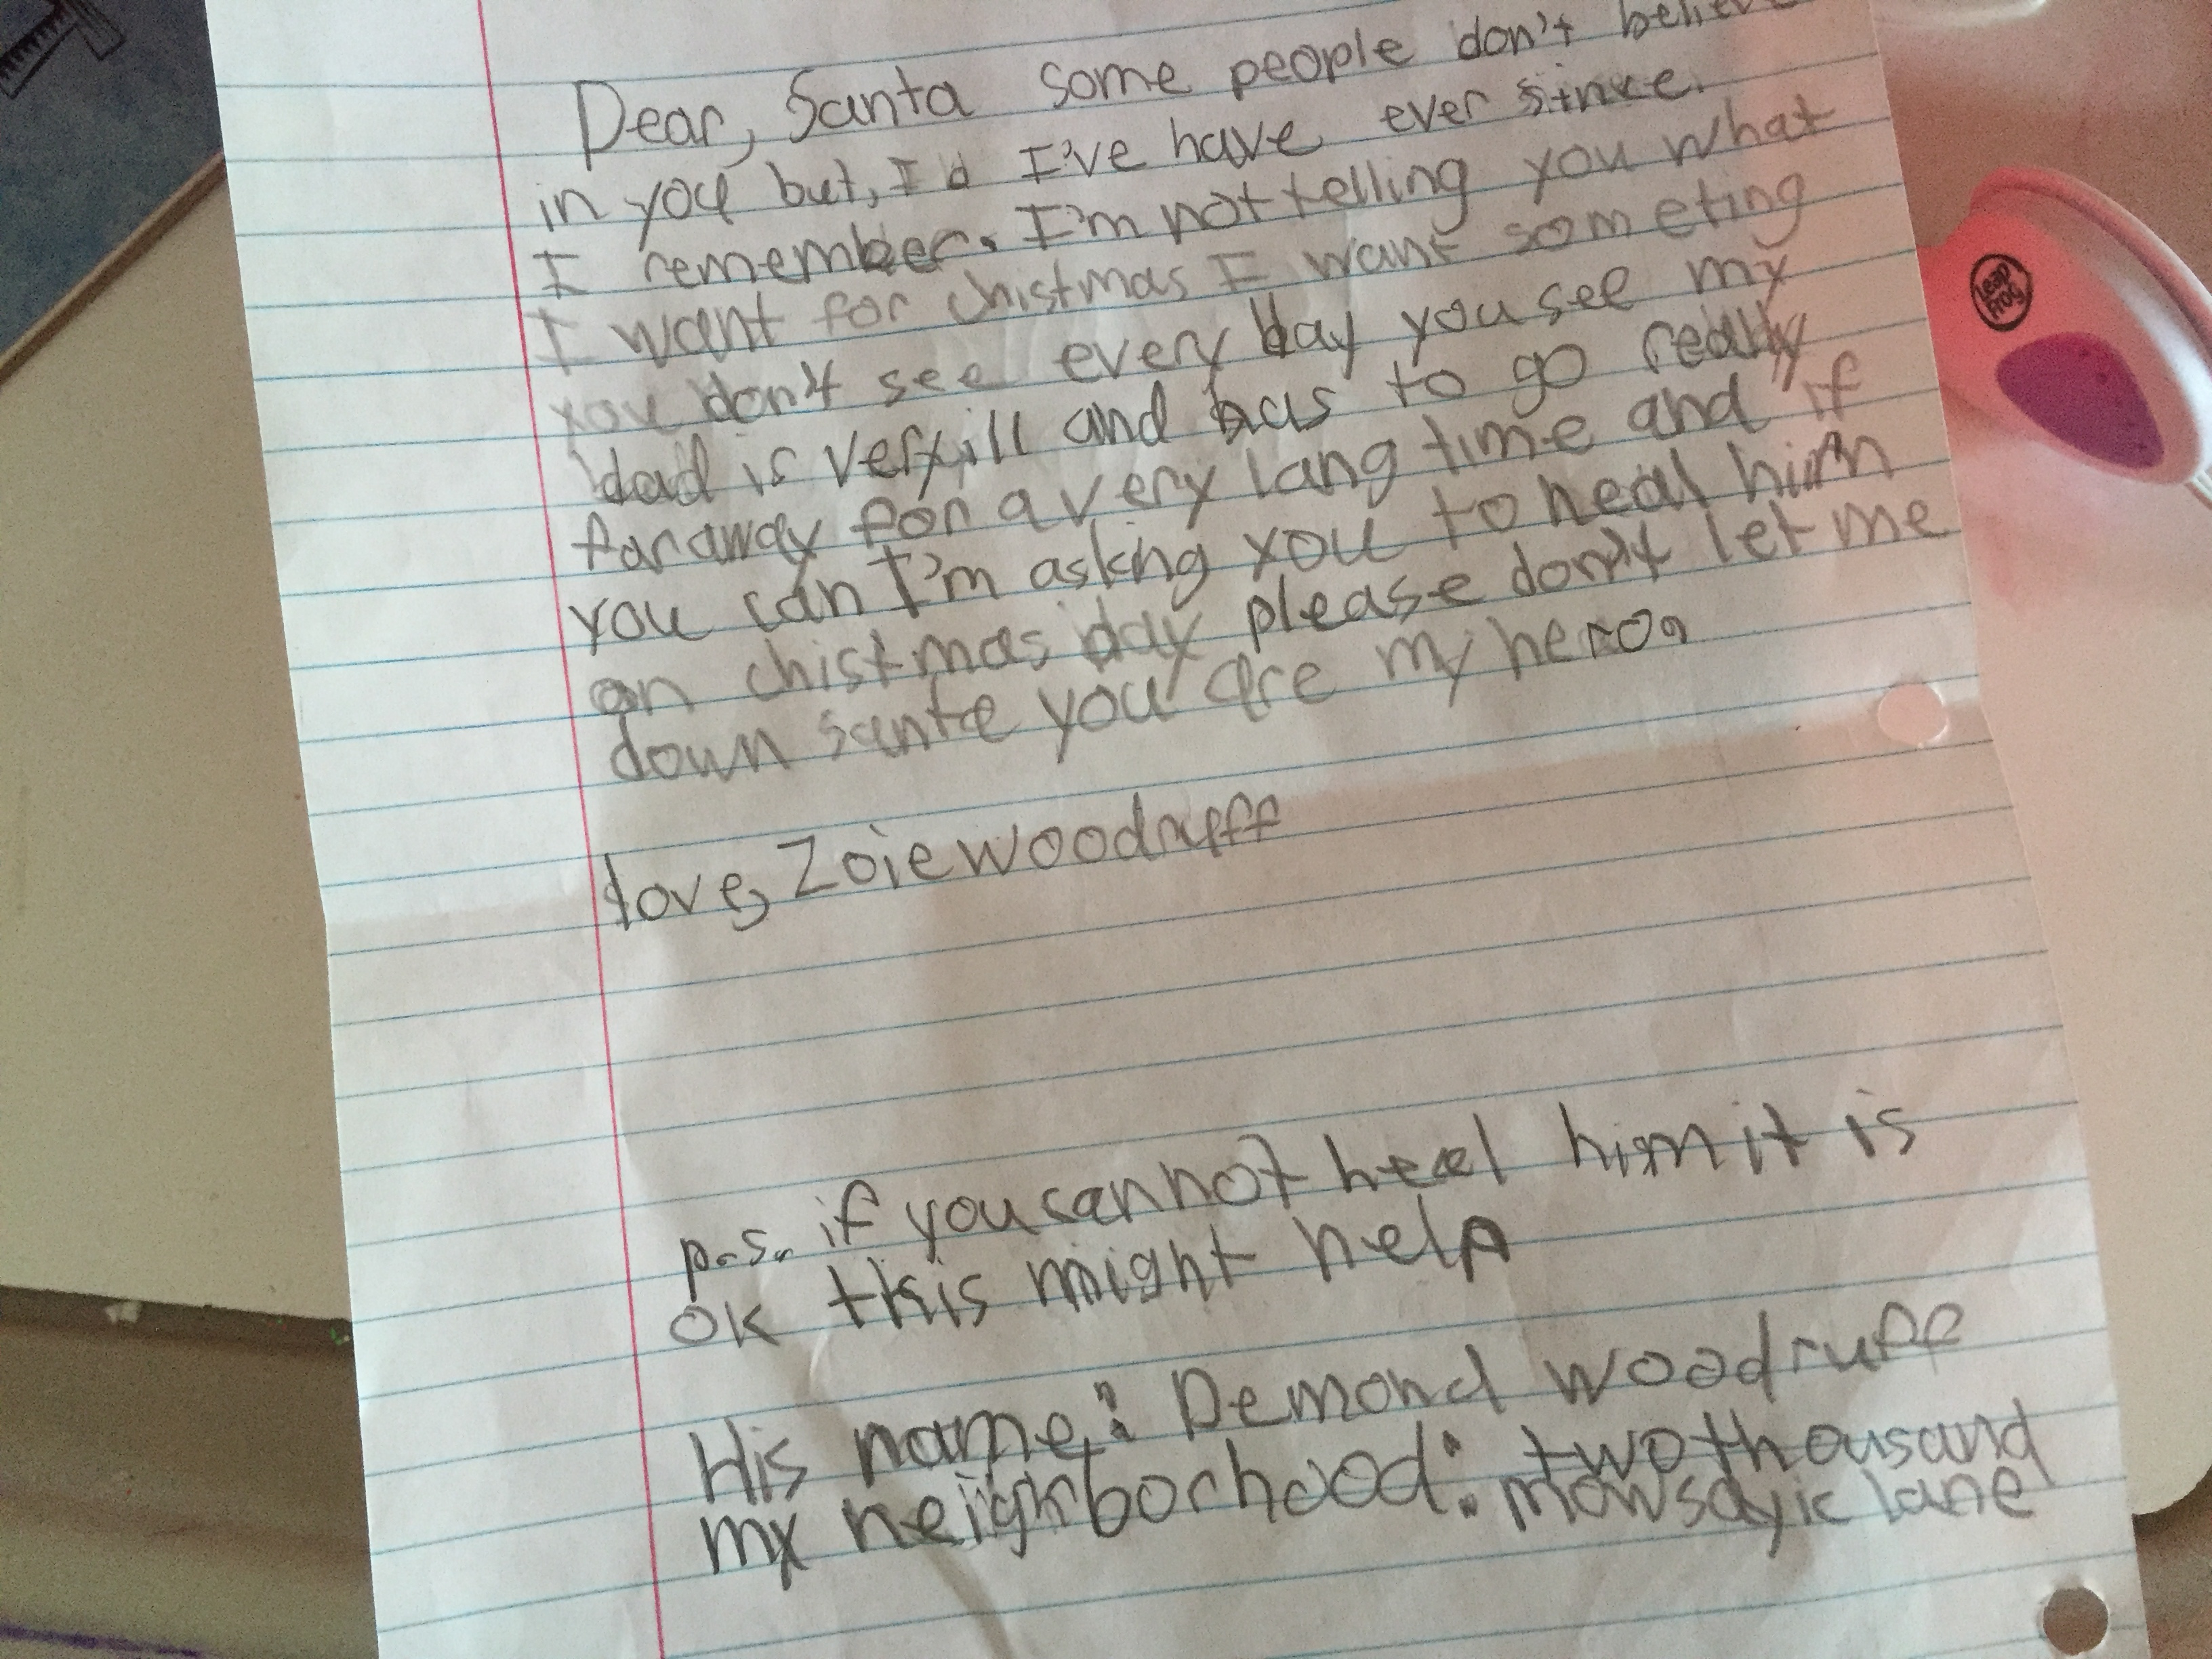 Dear, Santa some people don't believe
in you but, I'd I've have ever since
I remember. I'm not telling you what
I want for chistmas I want someting
you don't see every day you see my
dad is very ill and has to go really
far away for a very lang time and if
you can I'm asking you to heal him
on chistmas day please don't let me
down santa you are my hero.
love, Zoie woodruff
p.s. if you cannot heal him it is
ok this might help
His name: Demond woodruff
my neighborhood: two thousand
mowsayic lane
Leap
Frog